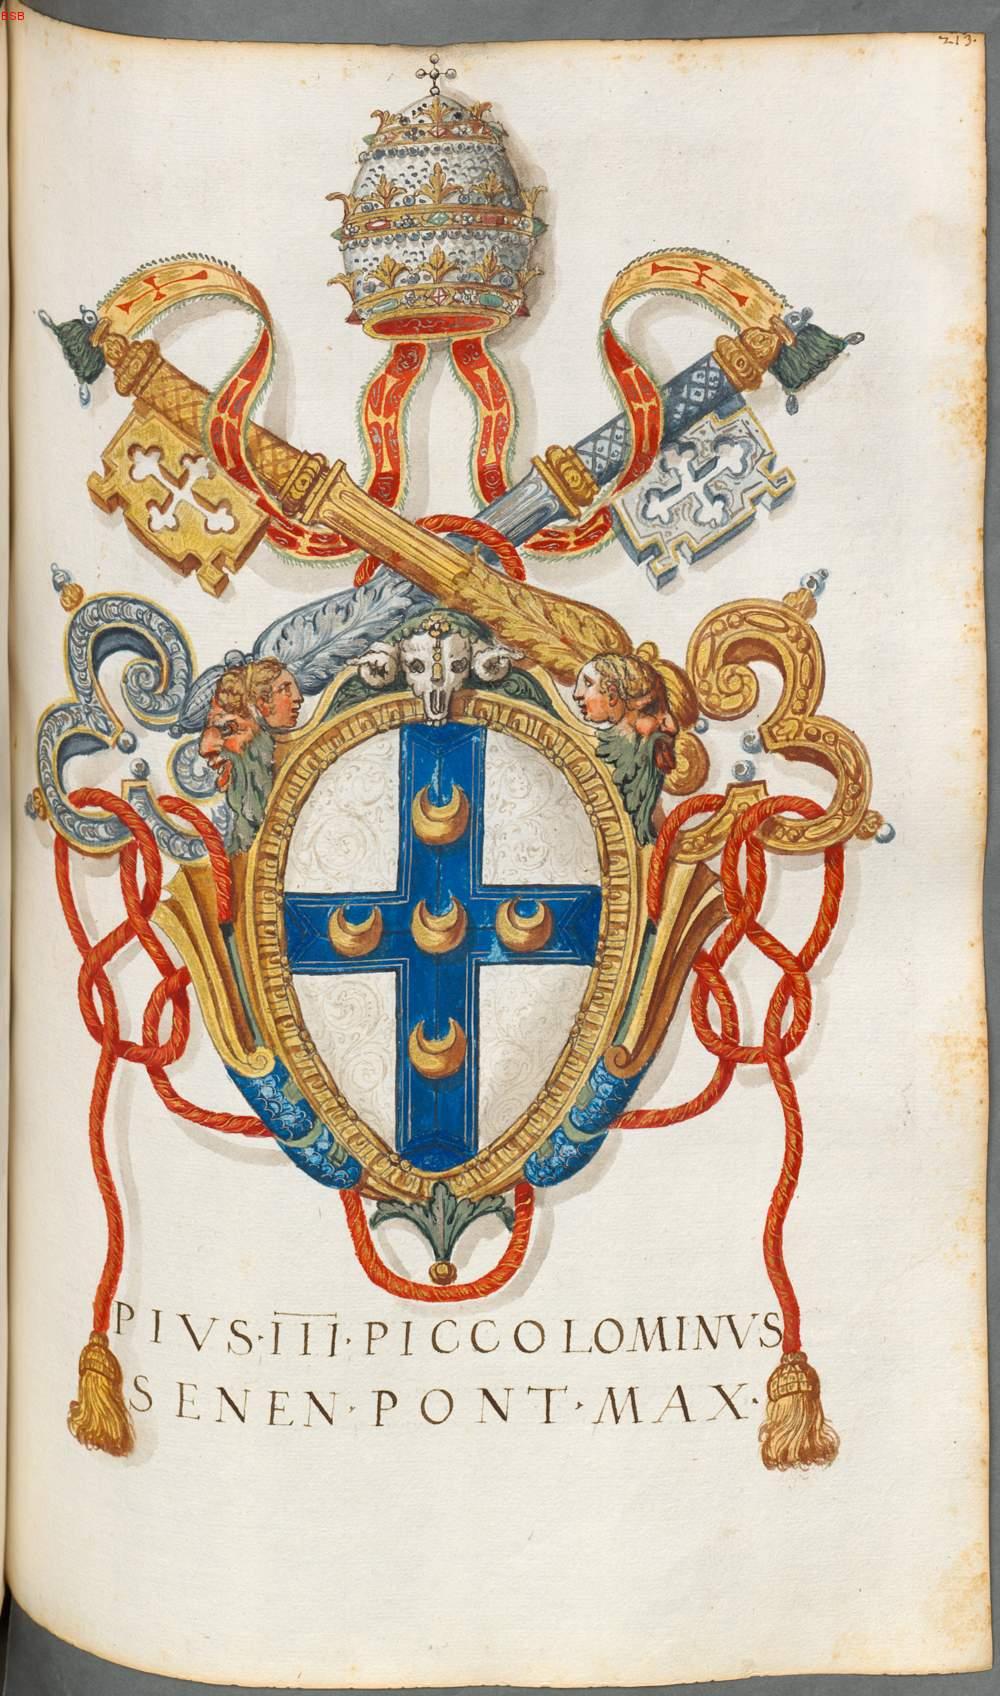 BSB
213.
PIVS·III·PICCOLOMINVS
SENEN·PONT·MAX·